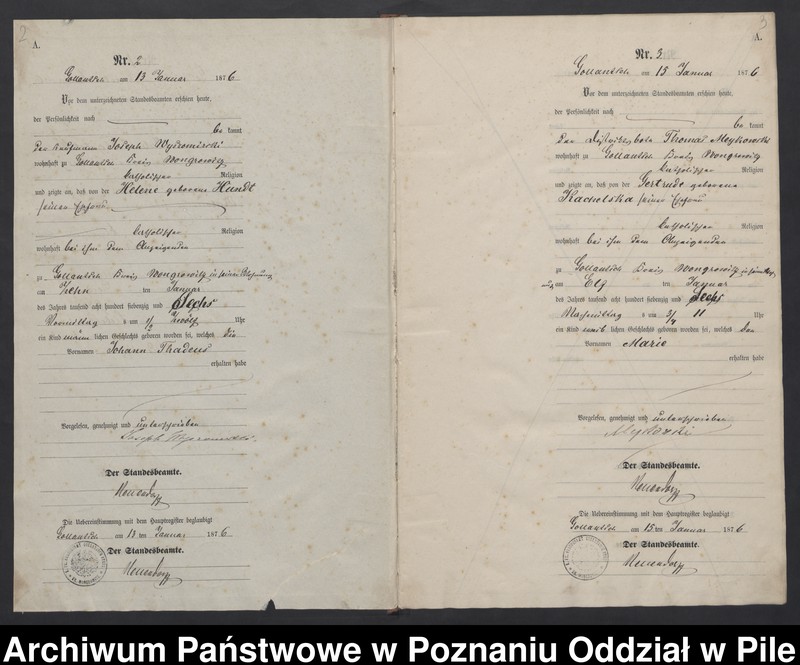 2
A.
Nr. 2
Gollantsch am 13 Januar 1876
Vor dem unterzeichneten Standesbeamten erschien heute,
der Persönlichkeit nach
be kannt
Der Kaufmann Joseph
wohnhaft zu Gollantsch Kreis Wongrowitz
katholischer Religion
und zeigte an, daß von der Helene geborene Handt
seiner Ehefrau
katholischer Religion
wohnhaft bei ihm dem Anzeigenden
zu Gollantsch Kreis Wongrowitz in seiner Wohnung
am Zehn ten Januar
des Jahres tausend acht hundert siebenzig und Sechs
Vormittag s um 1/2 Zwölf Uhr
ein Kind männ lichen Geschlechts geboren worden sei, welches die
Vornamen Johann Thadeus
erhalten habe
Vorgelesen, genehmigt und unterschrieben
Joseph
Der Standesbeamte.
Die Uebereinstimmung mit dem Hauptregister beglaubigt
Gollantsch am 13 ten Januar 1876
Der Standesbeamte.
3
A.
Nr. 3
Gollantsch am 15 Januar 1876
Vor dem unterzeichneten Standesbeamten erschien heute,
der Persönlichkeit nach
be kannt
Der Distriktsbote Thomas
wohnhaft zu Gollantsch Kreis Wongrowitz
katholischer Religion
und zeigte an, daß von der Gertrude geborene
Kachelska seiner Ehefrau
katholischer Religion
wohnhaft bei ihm dem Anzeigenden
zu Gollantsch Kreis Wongrowitz in seiner
am Elf ten Januar
des Jahres tausend acht hundert siebenzig und Sechs
Nachmittag s um 3/4 11 Uhr
ein Kind weib lichen Geschlechts geboren worden sei, welches den
Vornamen Marie
erhalten habe
Vorgelesen, genehmigt und unterschrieben
Der Standesbeamte.
Die Uebereinstimmung mit dem Hauptregister beglaubigt
Gollantsch am 15 ten Januar 1876
Der Standesbeamte.
Archiwum Państwowe w Poznaniu Oddział w Pile